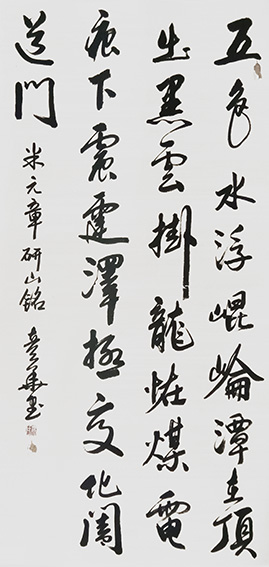 五色水浮崐崘潭在頂
出黑雲掛龍恠爍電
痕下震霆澤極变化闔
道門
米元章研山銘 華書